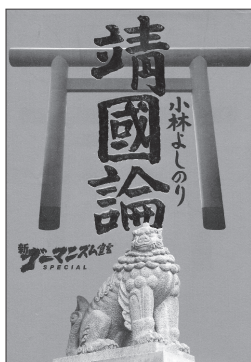 靖國論
小林よしのり
新ゴーマニズム宣言
SPECIAL